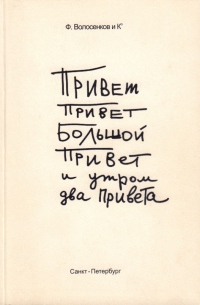 Ф. Волосенков и К°
ПРИВЕТ
ПРИВЕТ
БОЛЬШОЙ
ПРИВЕТ
и утром
два ПРИВЕТА
Санкт-Петербург